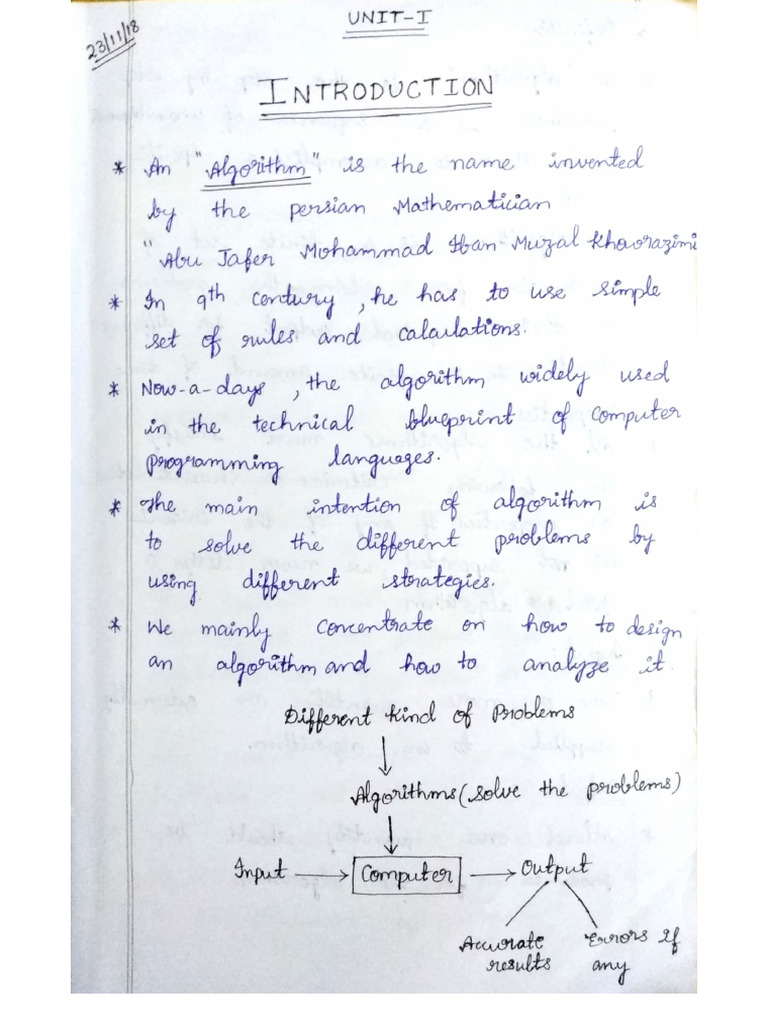 23/11/18
UNIT-I
INTRODUCTION
* An "Algorithm" is the name invented
by the persian Mathematician
"Abu Jafer Mohammad Iban Muzal Khaorazimi
* In 9th century, he has to use simple
set of rules and calculations.
* Now-a-days, the algorithm widely used
in the technical blueprint of computer
programming languages.
* The main intention of algorithm is
to solve the different problems by
using different strategies.
* We mainly concentrate on how to design
an algorithm and how to analyze it.
Different kind of Problems
Algorithms (solve the problems)
Input Computer Output
Accurate Errors if
results any